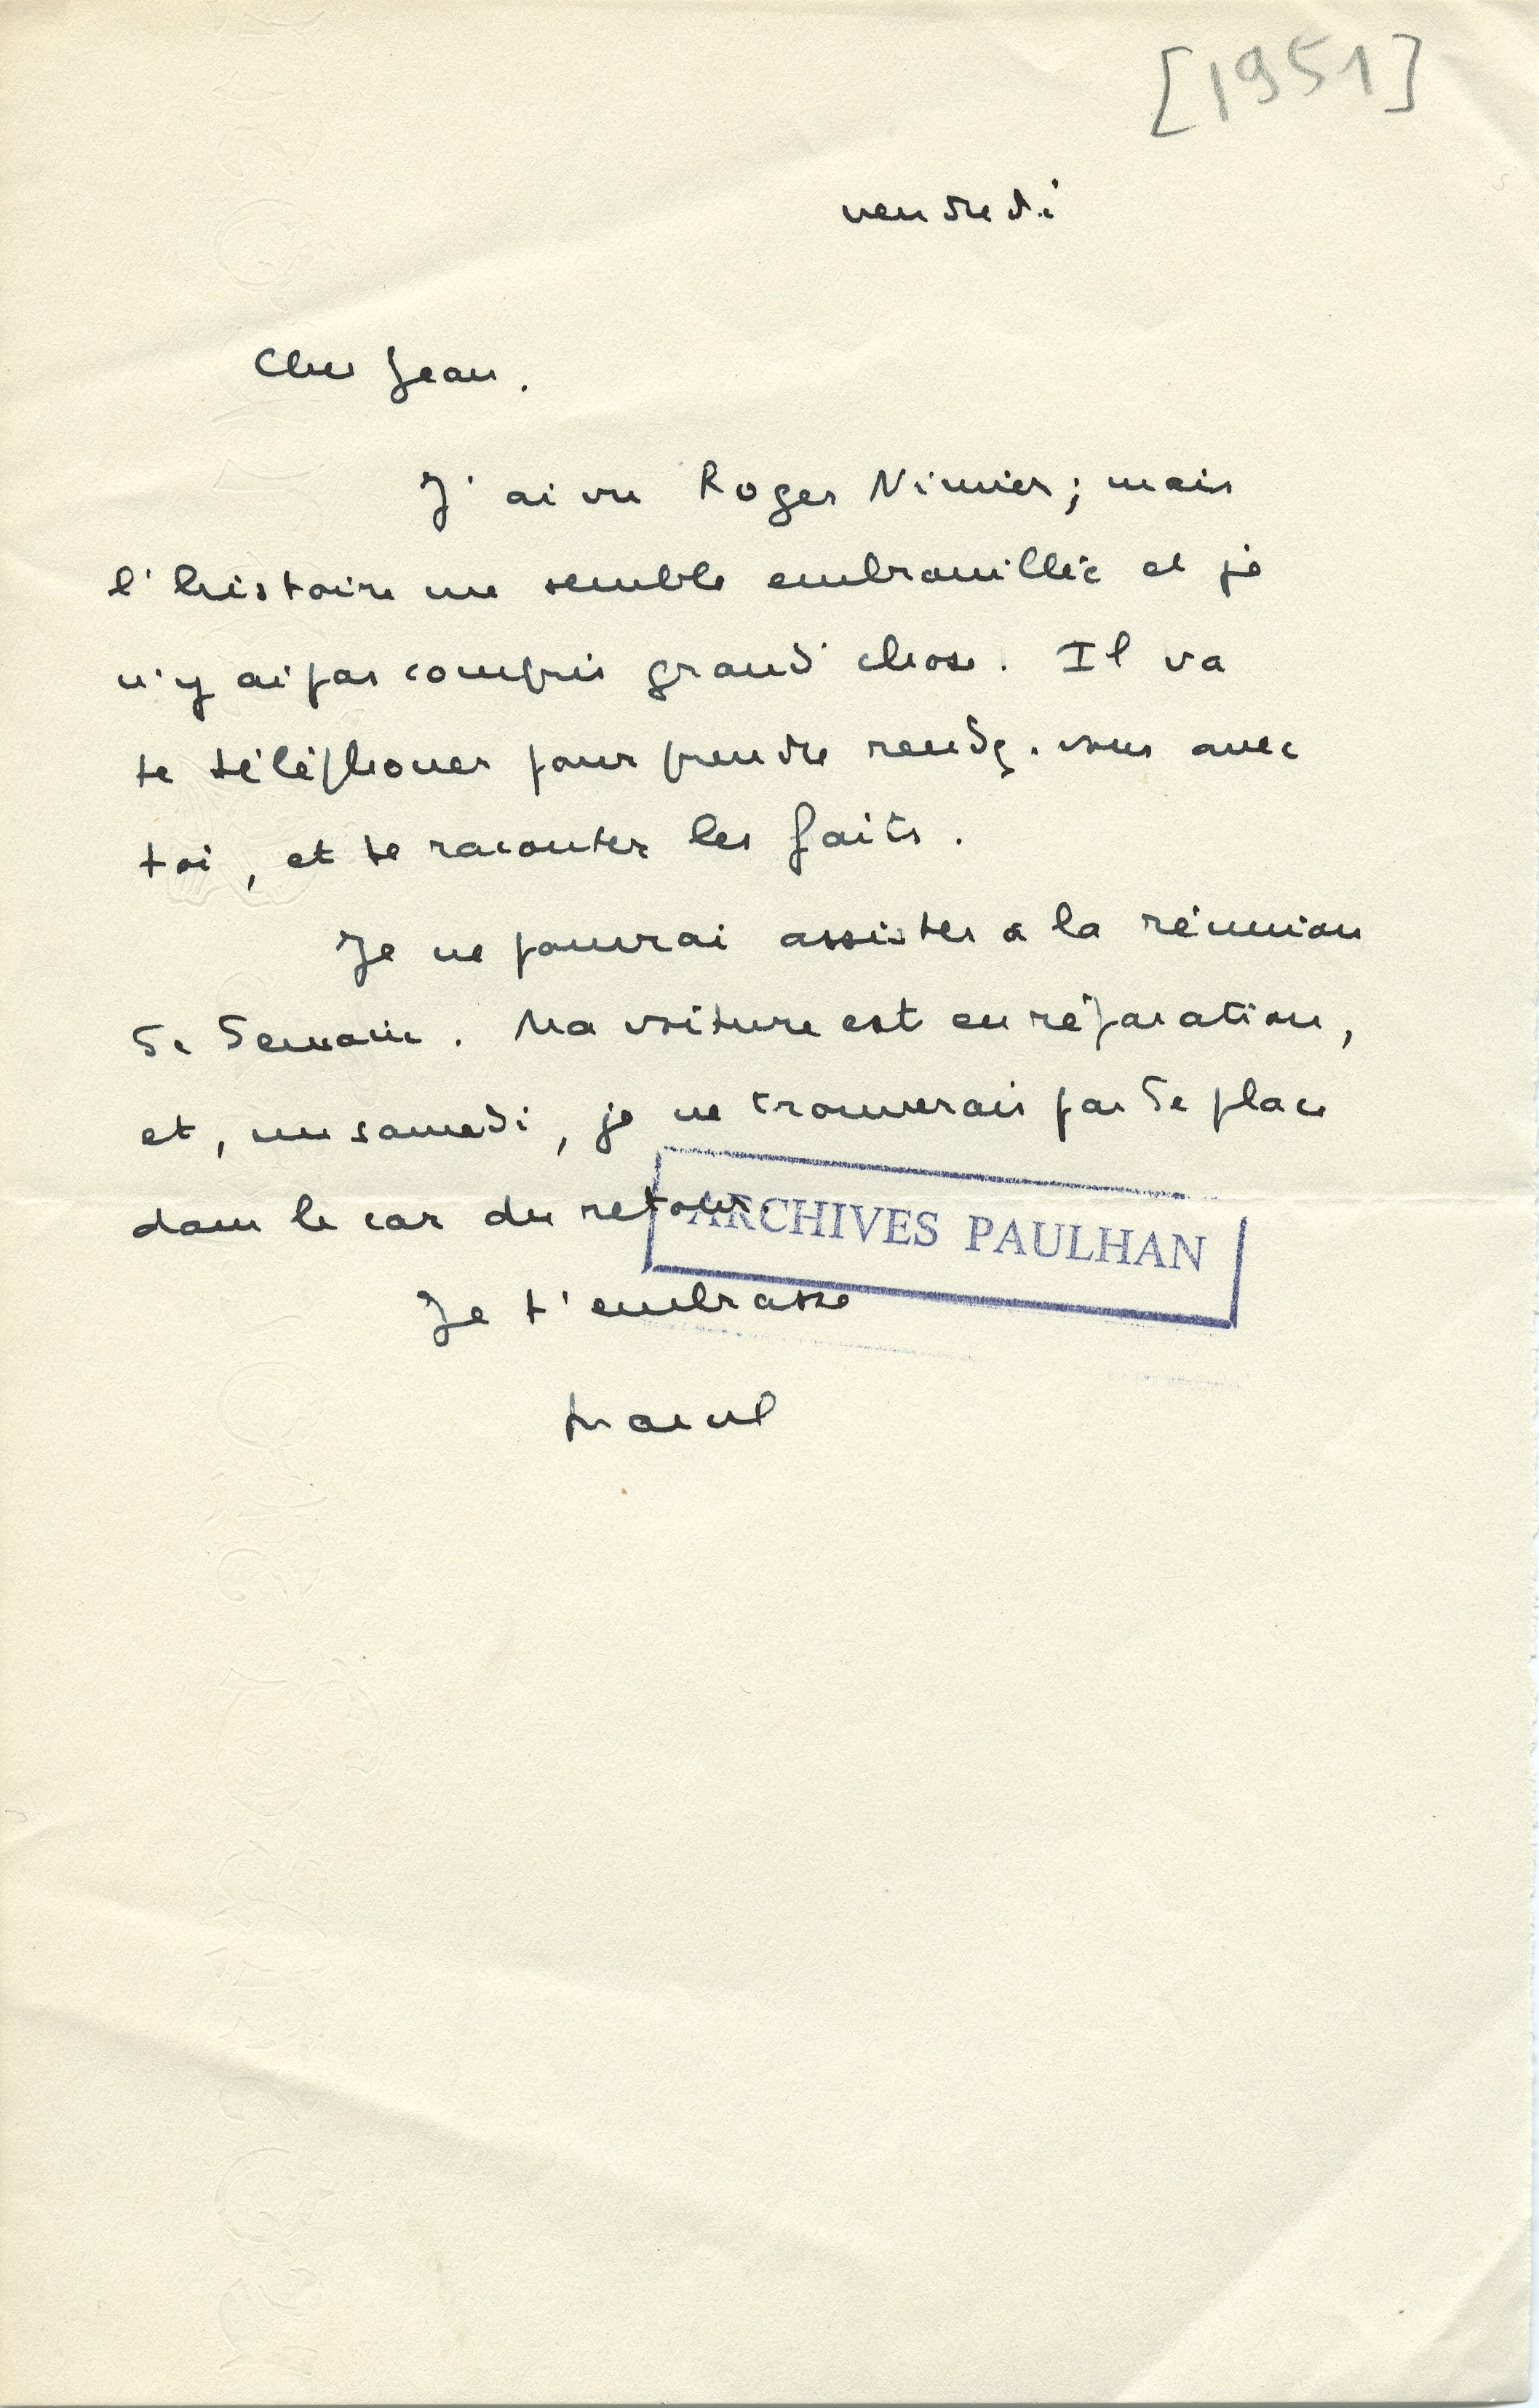 [1951]
vendredi
Cher Jean.
J'ai vu Roger Nimier ; mais
l'histoire me semble embrouillée et je
n'y ai pas compris grand'chose. Il va
te téléphoner pour prendre rendez-vous avec
toi, et te raconter les faits.
Je ne pourrai assister à la réunion
de demain. Ma voiture est en réparation,
et, un samedi, je ne trouverais pas de place
dans le car du retour.
ARCHIVES PAULHAN
Je t'embrasse
Marcel